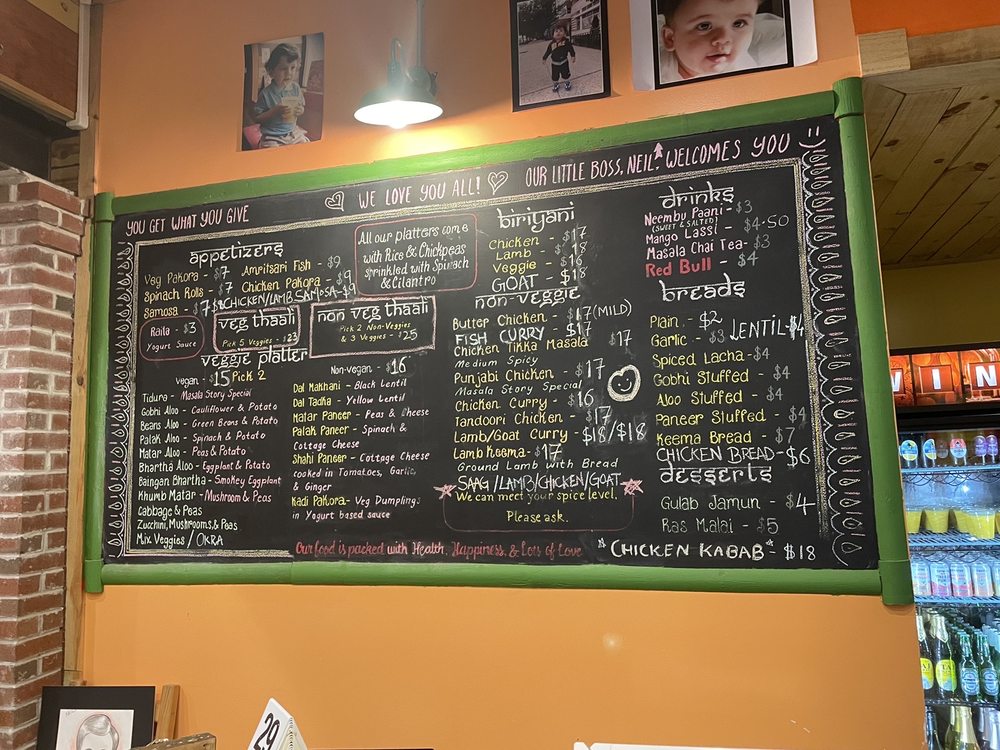 YOU GET WHAT YOU GIVE
WE LOVE YOU ALL!
OUR LITTLE BOSS, NEIL, WELCOMES YOU
appetizers
Veg Pakora - $7
Amritsari Fish - $9
Spinach Rolls - $7
Chicken Pakora - $9
Samosa - $7
CHICKEN/LAMB SAMOSA - $9
Raita - $3
Yogurt Sauce
veg thaali
Pick 5 Veggies - $23
non veg thaali
Pick 2 Non-Veggies
& 3 Veggies - $25
All our platters come
with Rice & Chickpeas
sprinkled with Spinach
& Cilantro
veggie platter
Vegan - $15 Pick 2
Tidura - Masala Story Special
Gobhi Aloo - Cauliflower & Potato
Beans Aloo - Green Beans & Potato
Palak Aloo - Spinach & Potato
Matar Aloo - Peas & Potato
Bhartha Aloo - Eggplant & Potato
Baingan Bhartha - Smokey Eggplant
Khumb Matar - Mushroom & Peas
Cabbage & Peas
Zucchini, Mushrooms, & Peas
Mix Veggies / OKRA
Non-vegan - $16
Dal Makhani - Black Lentil
Dal Tadka - Yellow Lentil
Matar Paneer - Peas & Cheese
Palak Paneer - Spinach &
Cottage Cheese
Shahi Paneer - Cottage Cheese
cooked in Tomatoes, Garlic,
& Ginger
Kadi Pakora - Veg Dumplings
in Yogurt based sauce
biriyani
Chicken - $17
Lamb - $18
Veggie - $16
GOAT - $18
non-veggie
Butter Chicken - $17 (MILD)
FISH CURRY - $17
Chicken Tikka Masala $17
Medium Spicy
Punjabi Chicken - $17
Masala Story Special
Chicken Curry - $16
Tandoori Chicken - $17
Lamb/Goat Curry - $18/$18
Lamb Keema - $17
Ground Lamb with Bread
SAAG/LAMB/CHICKEN/GOAT
We can meet your spice level.
Please ask.
drinks
Neembu Paani - $3
(SWEET & SALTED)
Mango Lassi - $4-50
Masala Chai Tea - $3
Red Bull - $4
breads
Plain - $2
Garlic - $3 LENTIL - $4
Spiced Lacha - $4
Gobhi Stuffed - $4
Aloo Stuffed - $4
Paneer Stuffed - $4
Keema Bread - $7
CHICKEN BREAD - $6
desserts
Gulab Jamun - $4
Ras Malai - $5
*CHICKEN KABAB* - $18
Our food is packed with Health, Happiness, & Lots of Love
WIN
29